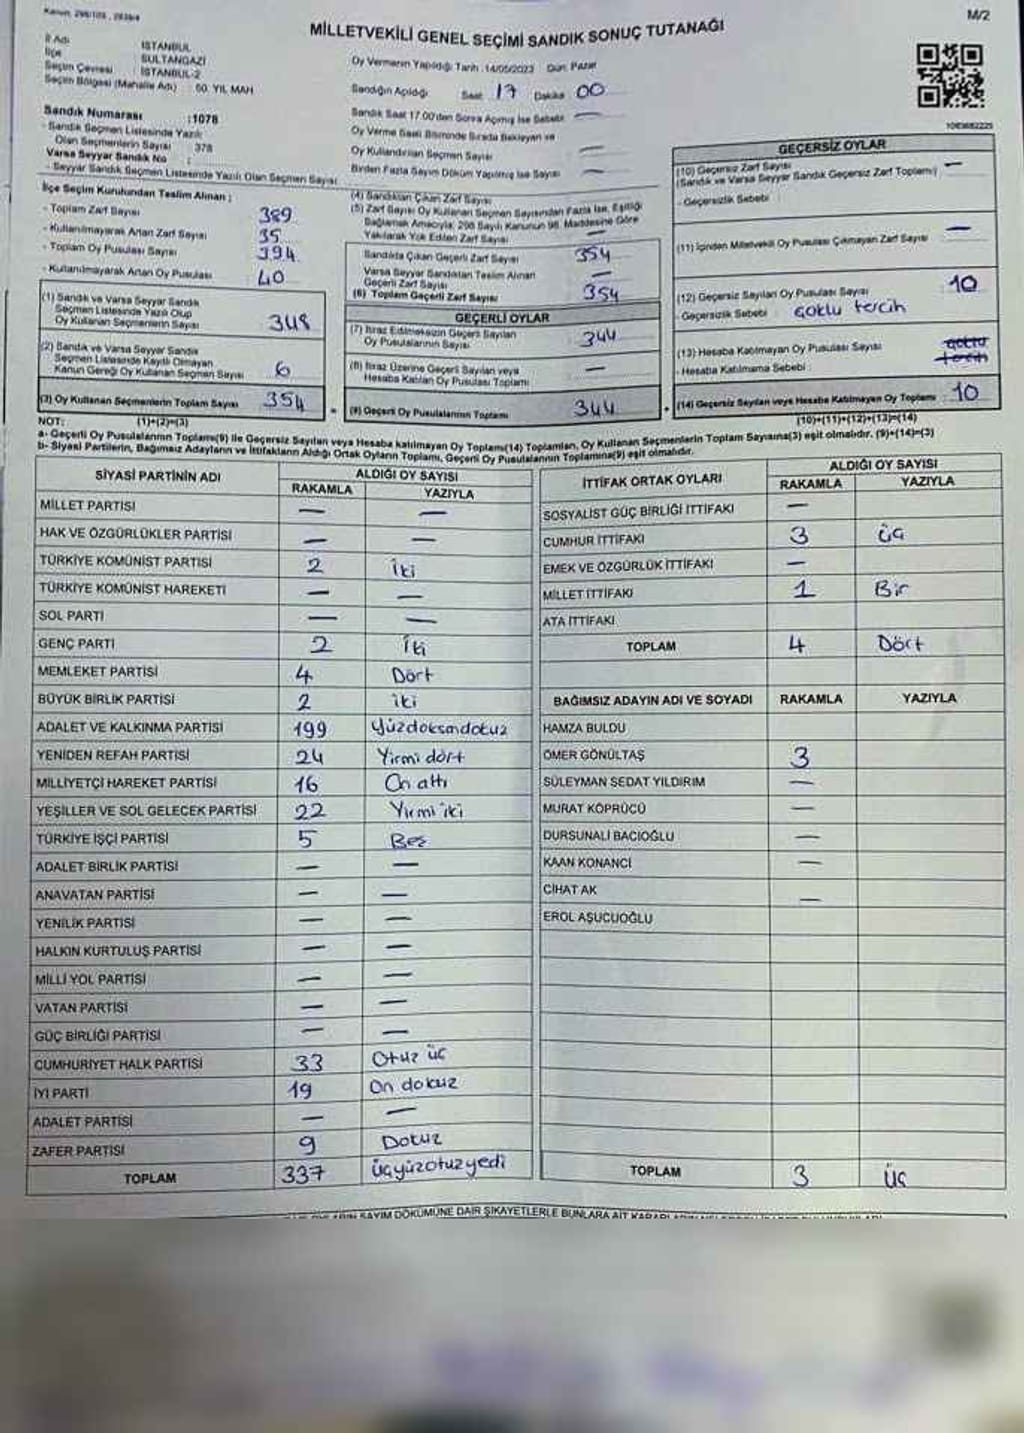 M/2
MİLLETVEKİLİ GENEL SEÇİMİ SANDIK SONUÇ TUTANAĞI
İl Adı : İSTANBUL
İlçe : SULTANGAZİ
Seçim Çevresi : İSTANBUL-2
Seçim Bölgesi (Mahalle Adı) : 50. YIL MAH
Sandık Numarası :1078
- Sandık Seçmen Listesinde Yazılı
Olan Seçmenlerin Sayısı : 378
Varsa Seyyar Sandık No :
- Seyyar Sandık Seçmen Listesinde Yazılı Olan Seçmen Sayısı
Oy Vermenin Yapıldığı Tarih :14/05/2023 Gün: Pazar
Sandığın Açıldığı Saat 17 Dakika 00
Sandık Saat 17.00'den Sonra Açılmış İse Sebebi —
Oy Verme Saati Bitiminde Sırada Bekleyen ve
Oy Kullandırılan Seçmen Sayısı —
Birden Fazla Sayım Döküm Yapılmış İse Sayısı —
İlçe Seçim Kurulundan Teslim Alınan :
- Toplam Zarf Sayısı 389
- Kullanılmayarak Artan Zarf Sayısı 35
- Toplam Oy Pusulası Sayısı 394
- Kullanılmayarak Artan Oy Pusulası 40
(1) Sandık ve Varsa Seyyar Sandık
Seçmen Listesinde Yazılı Olup
Oy Kullanan Seçmenlerin Sayısı 348
(2) Sandık ve Varsa Seyyar Sandık
Seçmen Listesinde Kayıtlı Olmayan
Kanun Gereği Oy Kullanan Seçmen Sayısı 6
(3) Oy Kullanan Seçmenlerin Toplam Sayısı 354
(4) Sandıktan Çıkan Zarf Sayısı
(5) Zarf Sayısı Oy Kullanan Seçmen Sayısından Fazla İse, Eşitliği
Sağlamak Amacıyla, 298 Sayılı Kanunun 98. Maddesine Göre
Yakılarak Yok Edilen Zarf Sayısı —
Sandıkta Çıkan Geçerli Zarf Sayısı 354
Varsa Seyyar Sandıktan Teslim Alınan
Geçerli Zarf Sayısı —
(6) Toplam Geçerli Zarf Sayısı 354
GEÇERLİ OYLAR
(7) İtiraz Edilmeksizin Geçerli Sayılan
Oy Pusulalarının Sayısı 344
(8) İtiraz Üzerine Geçerli Sayılan veya
Hesaba Katılan Oy Pusulası Toplamı —
(9) Geçerli Oy Pusulalarının Toplamı 344
GEÇERSİZ OYLAR
(10) Geçersiz Zarf Sayısı —
(Sandık ve Varsa Seyyar Sandık Geçersiz Zarf Toplamı)
- Geçersizlik Sebebi :
(11) İçinden Milletvekili Oy Pusulası Çıkmayan Zarf Sayısı —
(12) Geçersiz Sayılan Oy Pusulası Sayısı 10
- Geçersizlik Sebebi : Çoklu tercih
(13) Hesaba Katılmayan Oy Pusulası Sayısı çoklu
- Hesaba Katılmama Sebebi : tercih
(14) Geçersiz Sayılan veya Hesaba Katılmayan Oy Toplamı 10
NOT: (1)+(2)=(3) (10)+(11)+(12)+(13)=(14)
a- Geçerli Oy Pusulalarının Toplamı(9) ile Geçersiz Sayılan veya Hesaba katılmayan Oy Toplamı(14) Toplamları, Oy Kullanan Seçmenlerin Toplam Sayısına(3) eşit olmalıdır. (9)+(14)=(3)
b- Siyasi Partilerin, Bağımsız Adayların ve İttifakların Aldığı Ortak Oyların Toplamı, Geçerli Oy Pusulalarının Toplamına(9) eşit olmalıdır.
SİYASİ PARTİNİN ADI ALDIĞI OY SAYISI
RAKAMLA YAZIYLA
MİLLET PARTİSİ — —
HAK VE ÖZGÜRLÜKLER PARTİSİ — —
TÜRKİYE KOMÜNİST PARTİSİ 2 iki
TÜRKİYE KOMÜNİST HAREKETİ — —
SOL PARTİ — —
GENÇ PARTİ 2 İki
MEMLEKET PARTİSİ 4 Dört
BÜYÜK BİRLİK PARTİSİ 2 iki
ADALET VE KALKINMA PARTİSİ 199 Yüzdoksandokuz
YENİDEN REFAH PARTİSİ 24 Yirmi dört
MİLLİYETÇİ HAREKET PARTİSİ 16 On altı
YEŞİLLER VE SOL GELECEK PARTİSİ 22 Yirmi iki
TÜRKİYE İŞÇİ PARTİSİ 5 Beş
ADALET BİRLİK PARTİSİ — —
ANAVATAN PARTİSİ — —
YENİLİK PARTİSİ — —
HALKIN KURTULUŞ PARTİSİ — —
MİLLİ YOL PARTİSİ — —
VATAN PARTİSİ — —
GÜÇ BİRLİĞİ PARTİSİ — —
CUMHURİYET HALK PARTİSİ 33 Otuz üç
İYİ PARTİ 19 On dokuz
ADALET PARTİSİ — —
ZAFER PARTİSİ 9 Dokuz
TOPLAM 337 üçyüzotuzyedi
İTTİFAK ORTAK OYLARI ALDIĞI OY SAYISI
RAKAMLA YAZIYLA
SOSYALİST GÜÇ BİRLİĞİ İTTİFAKI —
CUMHUR İTTİFAKI 3 üç
EMEK VE ÖZGÜRLÜK İTTİFAKI —
MİLLET İTTİFAKI 1 Bir
ATA İTTİFAKI
TOPLAM 4 Dört
BAĞIMSIZ ADAYIN ADI VE SOYADI RAKAMLA YAZIYLA
HAMZA BULDU
ÖMER GÖNÜLTAŞ 3
SÜLEYMAN SEDAT YILDIRIM —
MURAT KÖPRÜCÜ —
DURSUNALİ BACIOĞLU —
KAAN KONANCI —
CİHAT AK —
EROL AŞUCUOĞLU
TOPLAM 3 üç
SAYIM DÖKÜMÜNE DAİR ŞİKAYETLERLE BUNLARA AİT